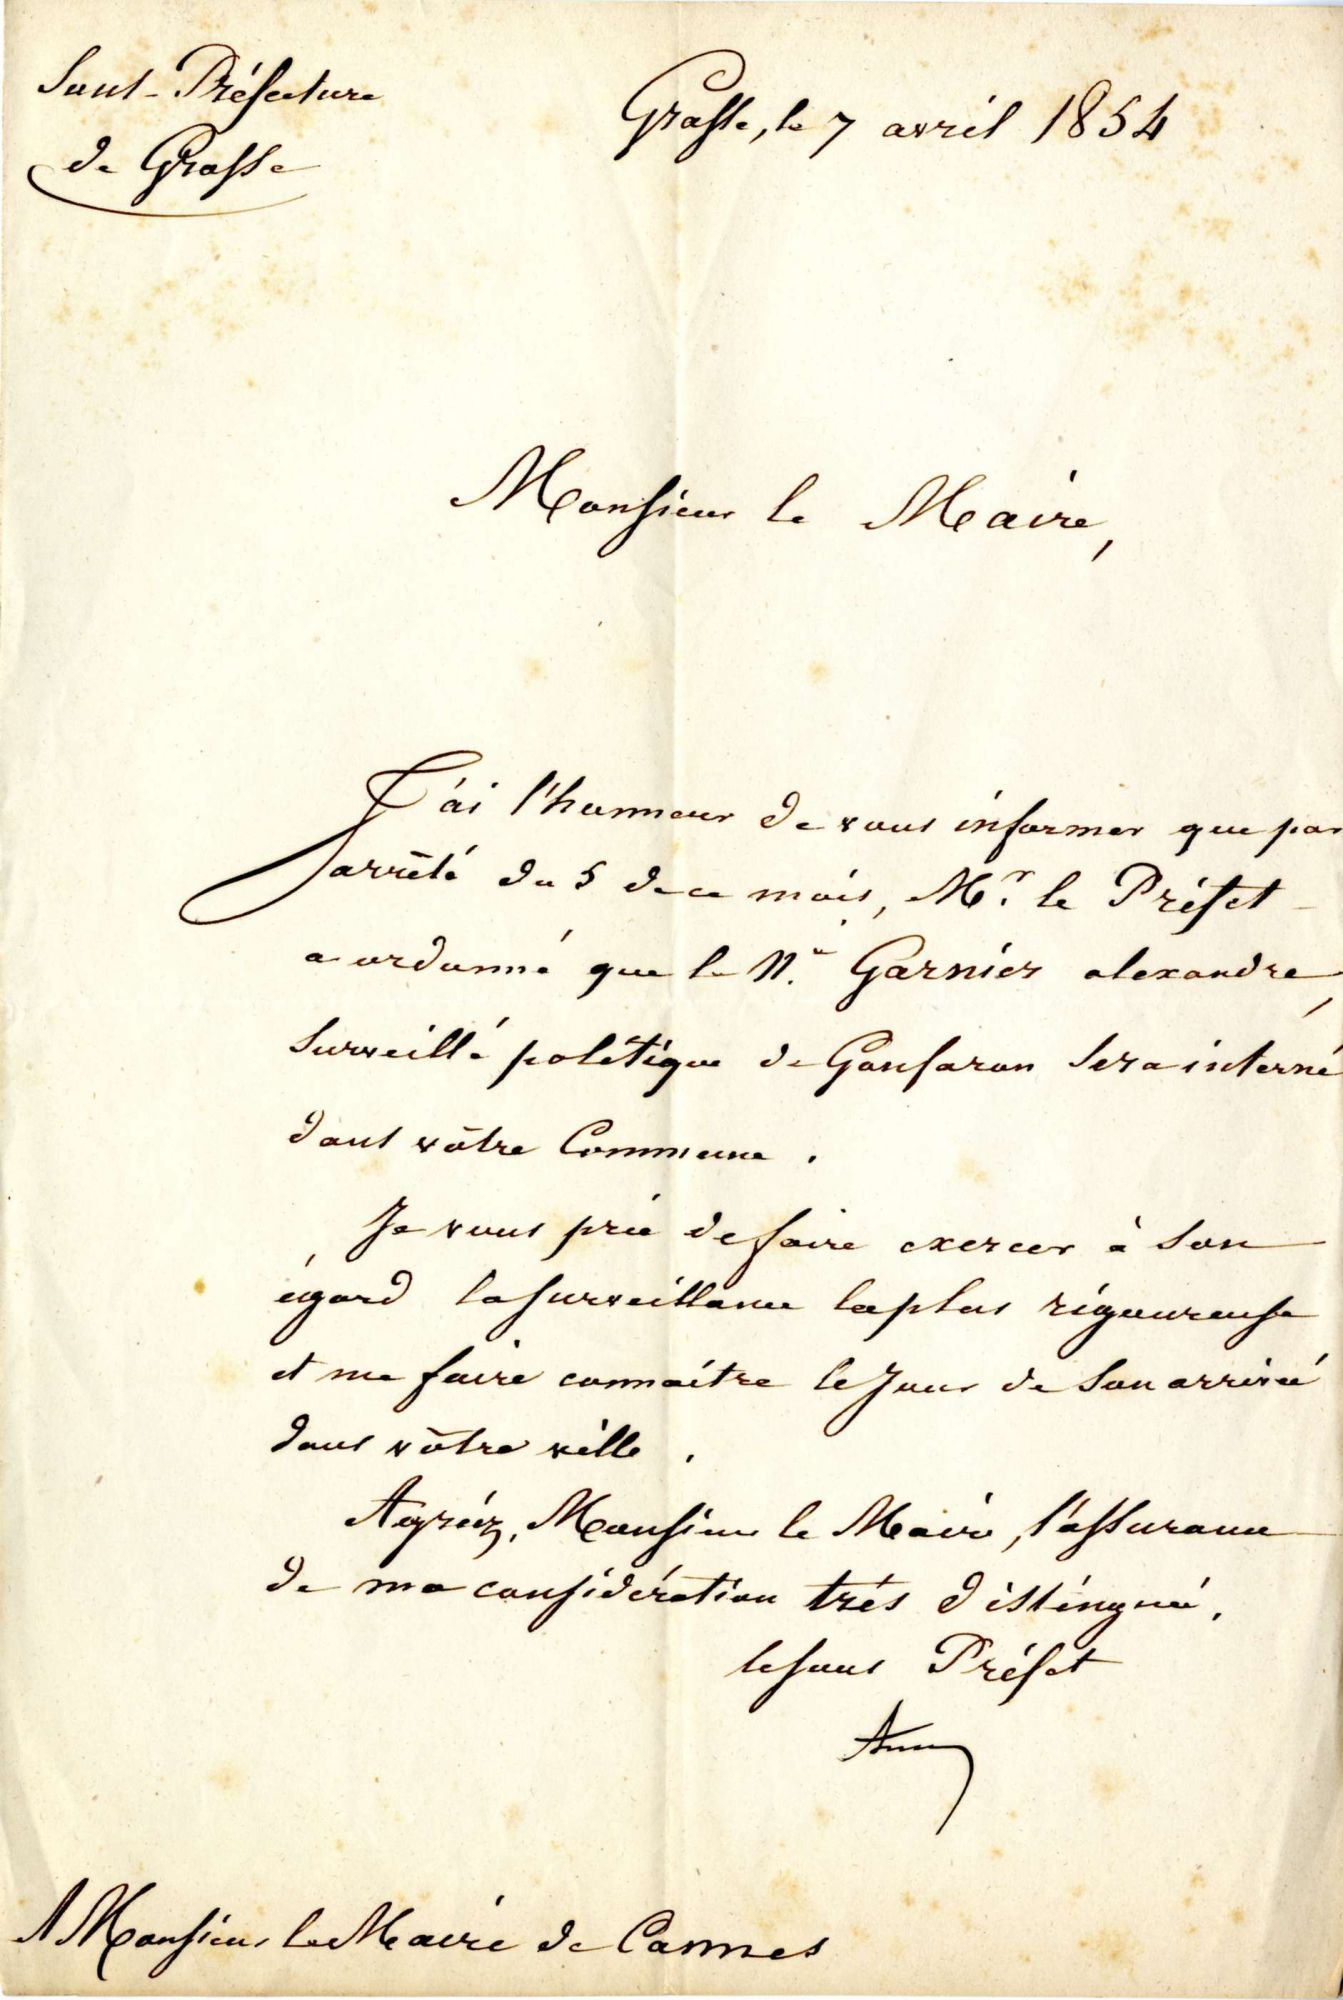 Sous-Préfecture
de Grasse
Grasse, le 7 avril 1854
Monsieur le Maire,
J'ai l'honneur de vous informer que par
arrêté du 5 de ce mois, Mr. le Préfet
a ordonné que le N.é Garnier alexandre,
Surveillé politique de Gonfaron sera interné
dans vôtre Commune.
Je vous prie de faire exercer à son
égard la surveillance la plus rigoureuse
et me faire connaître le Jour de son arrivée
dans vôtre ville.
Agréez, Monsieur le Maire, l'assurance
de ma considération très distinguée.
le sous Préfet
A Monsieur le Maire de Cannes